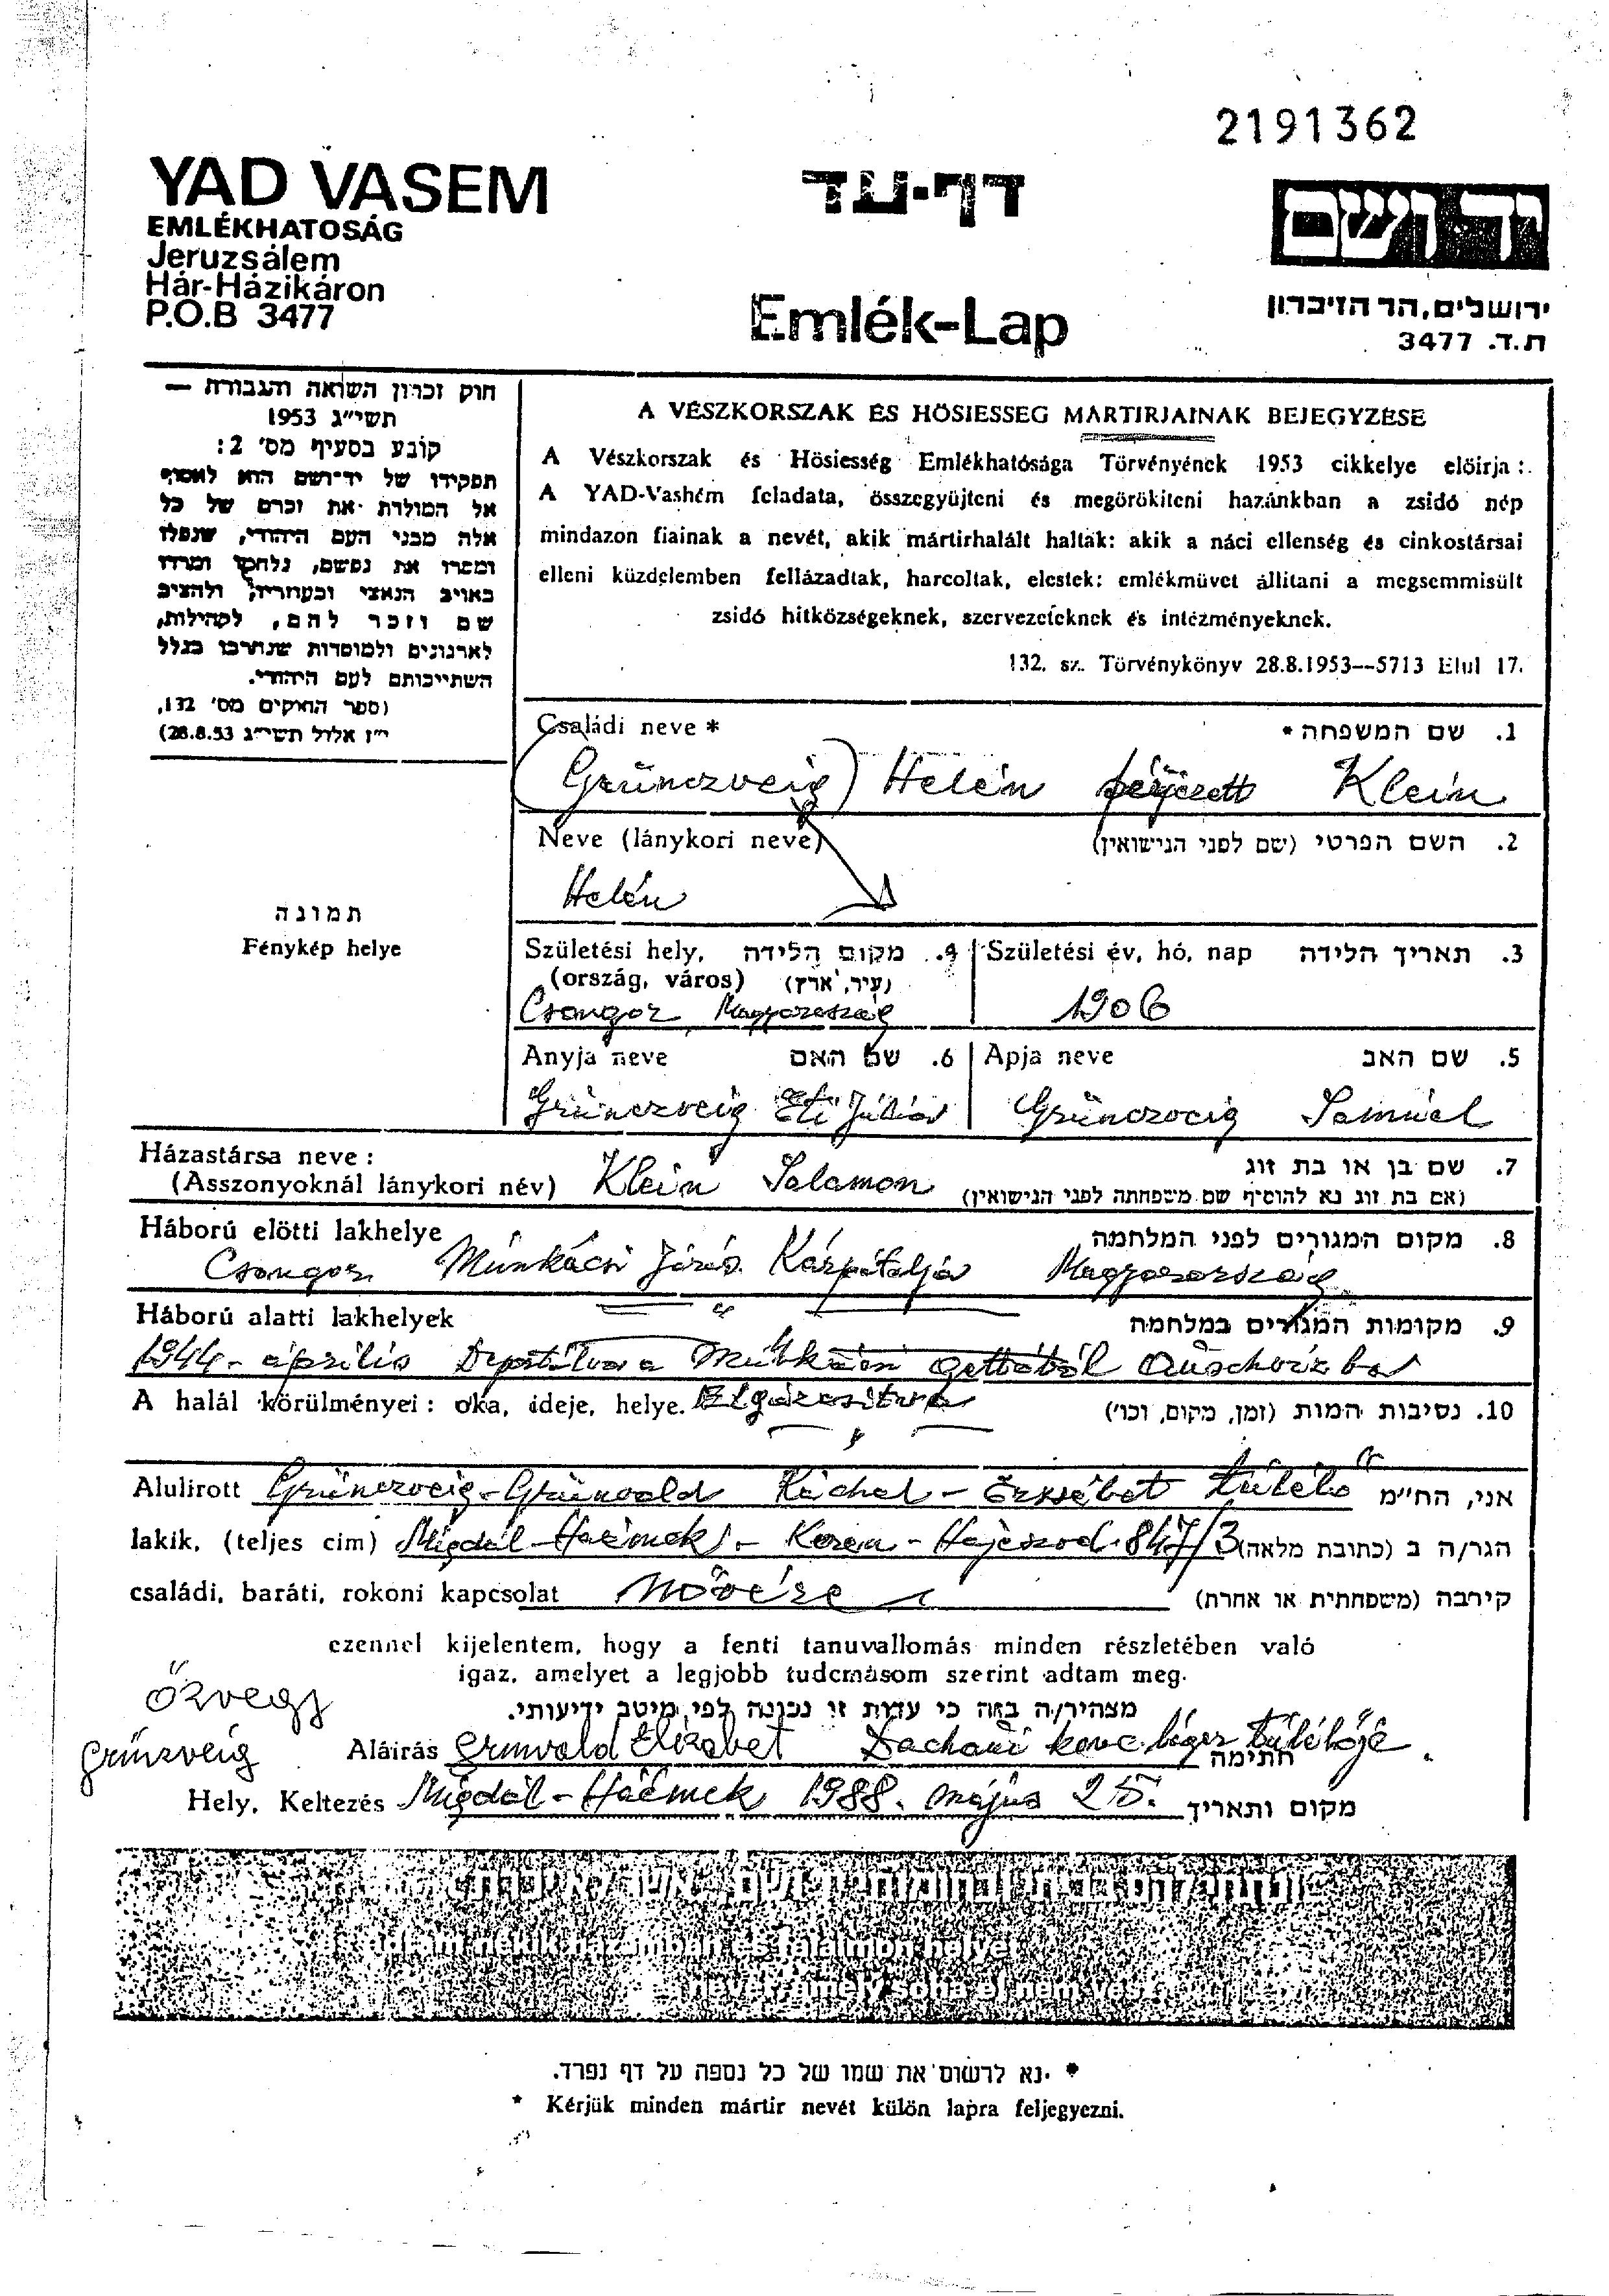 2191362
YAD VASEM
EMLÉKHATOSÁG
Jeruzsálem
Hár-Házikáron
P.O.B 3477
דף-עד
Emlék-Lap
יד ושם
ירושלים, הר הזיכרון
ת.ד. 3477
חוק זכרון השואה והגבורה —
תשי״ג 1953
קובע בסעיף מס׳ 2:
תפקידו של יד־ושם הוא לאסוף
אל המולדת את זכרם של כל
אלה מבני העם היהודי, שנפלו
ומסרו את נפשם, נלחמו ומרדו
באויב הנאצי ובעוזריו, ולהציב
שם וזכר להם, לקהילות,
לארגונים ולמוסדות שנחרבו בגלל
השתייכותם לעם היהודי.
(ספר החוקים מס׳ 132,
י״ז אלול תשי״ג 28.8.53)
תמונה
Fénykép helye
A VÉSZKORSZAK ÉS HÖSIESSEG MARTIRJAINAK BEJEGYZÉSE
A Vészkorszak és Hösiesség Emlékhatósága Törvényének 1953 cikkelye elöirja:
A YAD-Vashém feladata, összegyüjteni és megörökiteni hazánkban a zsidó nép
mindazon fiainak a nevét, akik mártirhalált haltak: akik a náci ellenség és cinkostársai
elleni küzdelemben fellázadtak, harcoltak, elestek: emlékmüvet állitani a megsemmisült
zsidó hitközségeknek, szervezeteknek és intézményeknek.
132. sz. Törvénykönyv 28.8.1953--5713 Elul 17.
Családi neve * 1. שם המשפחה *
(Grünczveig) Helén férjezett Klein
Neve (lánykori neve) 2. השם הפרטי (שם לפני הנישואין)
Helén
Születési hely, 4. מקום הלידה
(ország, város) (עיר, ארץ)
Csongor, Magyarország
Születési év, hó, nap 3. תאריך הלידה
1906
Anyja neve 6. שם האם
Grünczveig Eti Júlia
Apja neve 5. שם האב
Grünczveig Samuel
Házastársa neve: 7. שם בן או בת זוג
(Asszonyoknál lánykori név) Klein Salamon (אם בת זוג נא להוסיף שם משפחתה לפני הנישואין)
Háború elötti lakhelye 8. מקום המגורים לפני המלחמה
Csongor Munkácsi Járás Kárpátalja Magyarország
Háború alatti lakhelyek 9. מקומות המגורים במלחמה
1944-április Deportálva a Munkácsi gettoból Auschvicba
A halál körülményei: oka, ideje, helye. Elgázositva 10. נסיבות המות (זמן, מקום, וכו׳)
Alulirott Grünczveig-Grünvald Ráchel - Erzsébet túlélő אני, הח״מ
lakik, (teljes cim) Migdál-Haémek - Keren-Hajeszod 847/3 הגר/ה ב (כתובת מלאה)
családi, baráti, rokoni kapcsolat nővére קירבה (משפחתית או אחרת)
ezennel kijelentem, hogy a fenti tanuvallomás minden részletében való
igaz, amelyet a legjobb tudomásom szerint adtam meg.
מצהיר/ה בזה כי עדות זו נכונה לפי מיטב ידיעותי.
özvegy
Grünzveig
Aláirás Grunvald Elizabet Dachaui konc. láger túlélője. חתימה
Hely, Keltezés Migdál-Haémek 1988. május 25. מקום ותאריך
ונתתי להם בביתי ובחומותי יד ושם... אשר לא יכרת
adram nékik házamban és falaimon helyet
nevet, amely soha el nem vész
* נא לרשום את שמו של כל נספה על דף נפרד.
* Kérjük minden mártir nevét külön lapra feljegyezni.